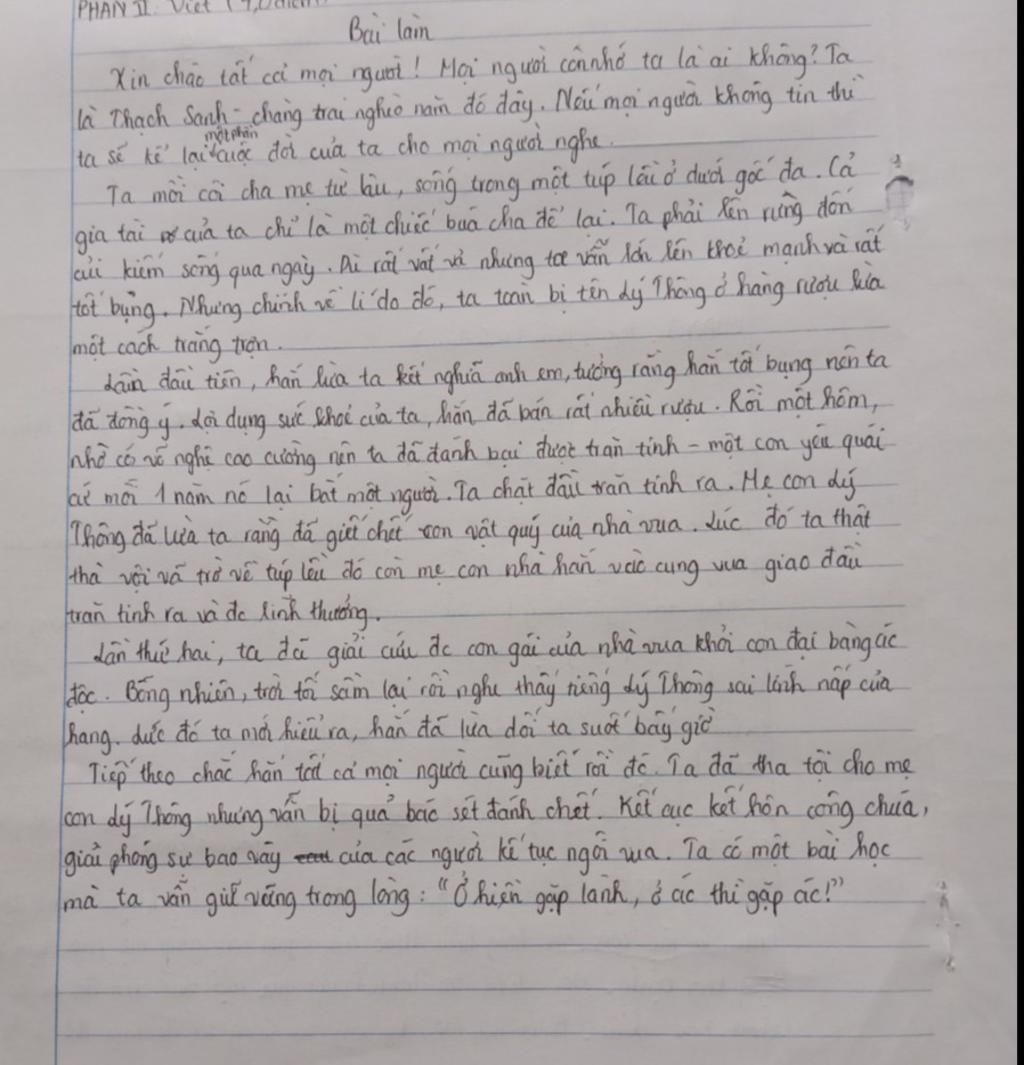 PHẦN II. Viết (4,0 điểm)
Bài làm
Xin chào tất cả mọi người! Mọi người còn nhớ ta là ai không? Ta
là Thạch Sanh - chàng trai nghèo năm đó đây. Nếu mọi người không tin thì
ta sẽ kể lại một phần cuộc đời của ta cho mọi người nghe.
Ta mồi côi cha mẹ từ lâu, sống trong một túp lều ở dưới gốc đa. Cả
gia tài của ta chỉ là một chiếc búa cha để lại. Ta phải lên rừng đốn
củi kiếm sống qua ngày. Dù rất vất vả nhưng ta vẫn lớn lên khoẻ mạnh và rất
tốt bụng. Nhưng chính vì lí do đó, ta toàn bị tên Lý Thông ở hàng rượu lừa
một cách trắng trợn.
Lần đầu tiên, hắn lừa ta kết nghĩa anh em, tưởng rằng hắn tốt bụng nên ta
đã đồng ý. Lợi dụng sức khoẻ của ta, hắn đã bán rất nhiều rượu. Rồi một hôm,
nhờ có võ nghệ cao cường nên ta đã đánh bại được trăn tinh - một con yêu quái
cứ mỗi 1 năm nó lại bắt một người. Ta chặt đầu trăn tinh ra. Mẹ con Lý
Thông đã lừa ta rằng đã giết chết con vật quý của nhà vua. Lúc đó ta thật
thà vội vã trở về túp lều đó còn mẹ con nhà hắn vào cung vua giao đầu
trăn tinh ra và đc lĩnh thưởng.
Lần thứ hai, ta đã giải cứu đc con gái của nhà vua khỏi con đại bàng ác
độc. Bỗng nhiên, trời tối sầm lại rồi nghe thấy tiếng Lý Thông sai lính nấp cửa
hang. Lúc đó ta mới hiểu ra, hắn đã lừa dối ta suốt bấy giờ
Tiếp theo chắc hẳn tất cả mọi người cũng biết rồi đó. Ta đã tha tội cho mẹ
con Lý Thông nhưng vẫn bị quả báo sét đánh chết. Kết cục kết hôn công chúa,
giải phóng sự bao vây của các người kế tục ngôi vua. Ta có một bài học
mà ta vẫn giữ vững trong lòng: "Ở hiền gặp lành, ở ác thì gặp ác!"